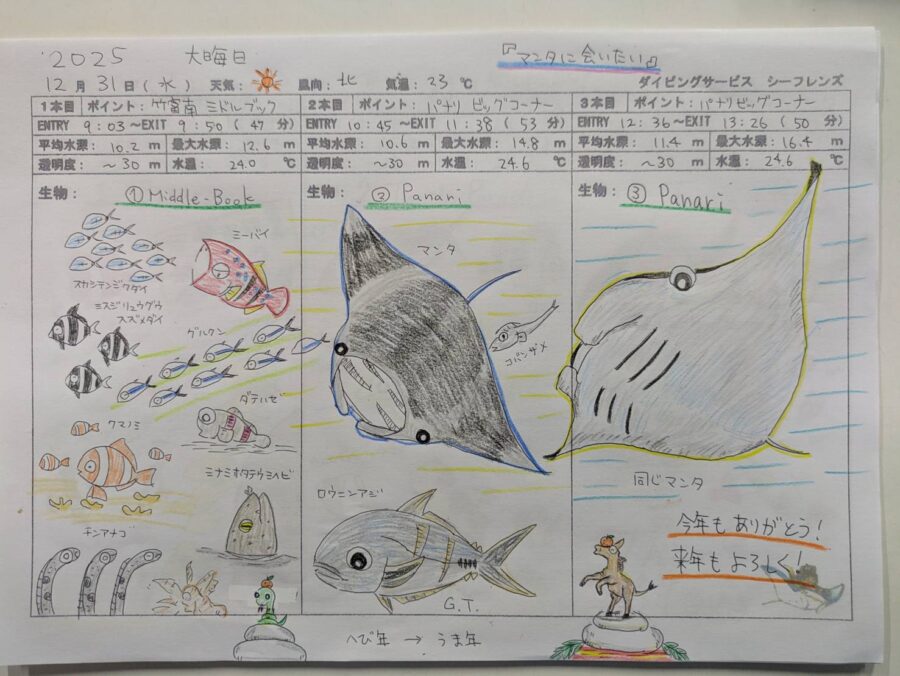 2025 大晦日 『マンタに会いたい』
12月31日(水) 天気: 風向:北 気温:23℃ ダイビングサービス シーフレンズ
1本目 ポイント:竹富南 ミドルブック
ENTRY 9:03~EXIT 9:50(47分)
平均水深: 10.2 m 最大水深: 12.6 m
透明度: ~30 m 水温: 24.0 ℃
生物: ①Middle-Book
スカシテンジクダイ
ミーバイ
ミスジリュウグウ
スズメダイ
グルクン
クマノミ
ダテハゼ
ミナミホタテウミヘビ
チンアナゴ
2本目 ポイント:パナリ ビッグコーナー
ENTRY 10:45~EXIT 11:38(53分)
平均水深: 10.6 m 最大水深: 14.8 m
透明度: ~30 m 水温: 24.6 ℃
生物: ② Panari
マンタ
コバンザメ
ロウニンアジ
G.T.
3本目 ポイント:パナリビッグコーナー
ENTRY 12:36~EXIT 13:26(50分)
平均水深: 11.4 m 最大水深: 16.4 m
透明度: ~30 m 水温: 24.6 ℃
生物: ③ Panari
同じマンタ
今年もありがとう!
来年もよろしく!
へび年 → うま年